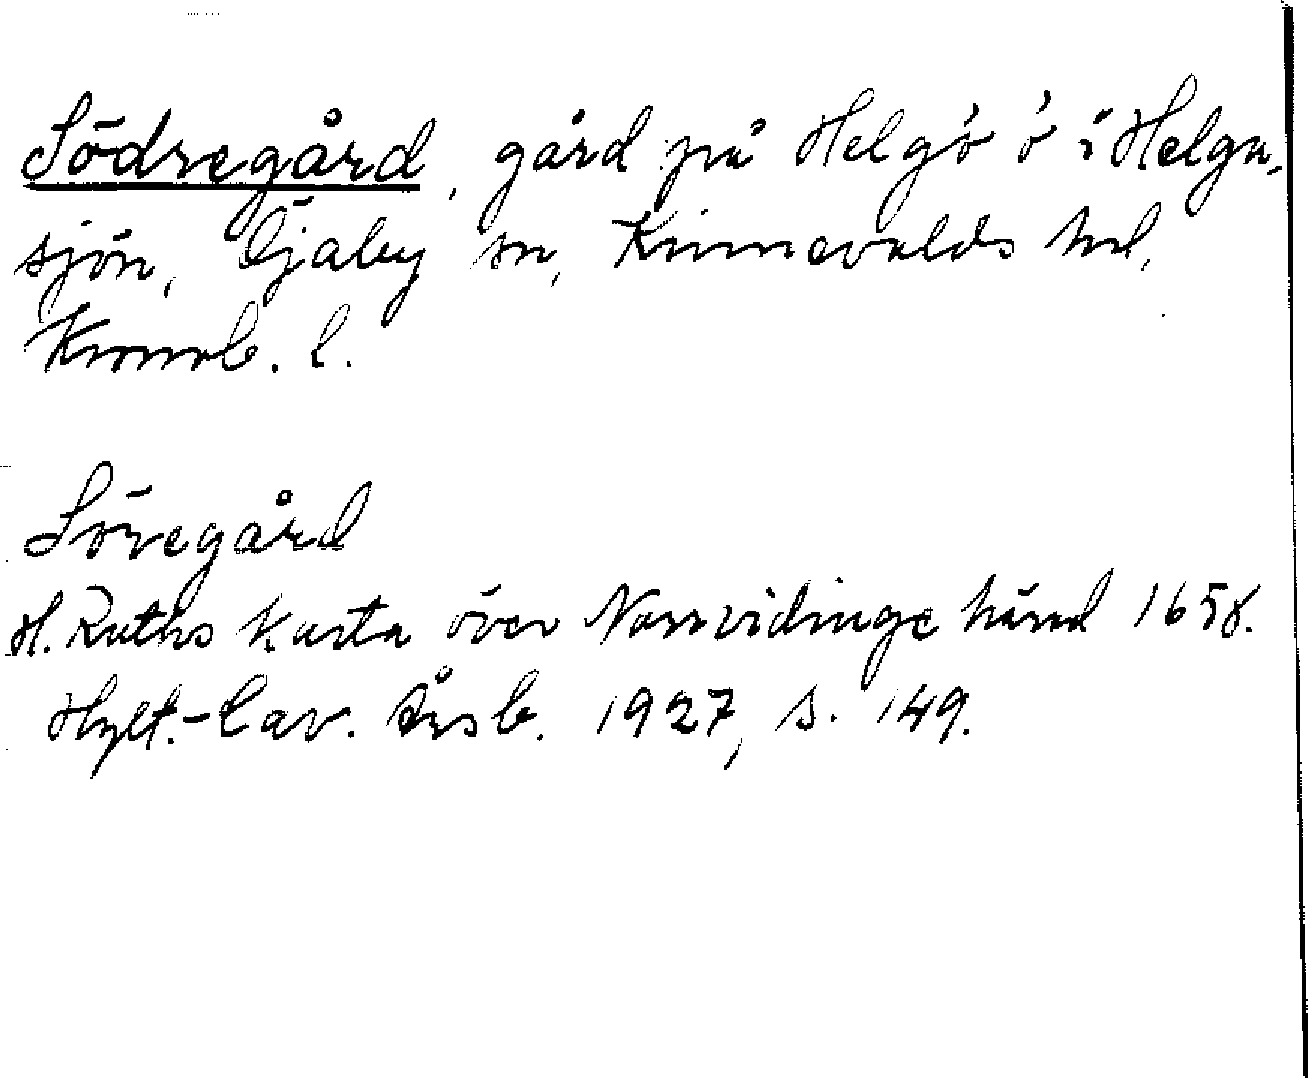 Södregård, gård på Helgö ö i Helga-
sjön, Öjaby sn, Kinnevalds hd,
Kronob. l.
Söregård
H. Ruths karta över Norrvidinge härad 1658.
Hylt.-Cav. Årsb. 1927, s. 149.